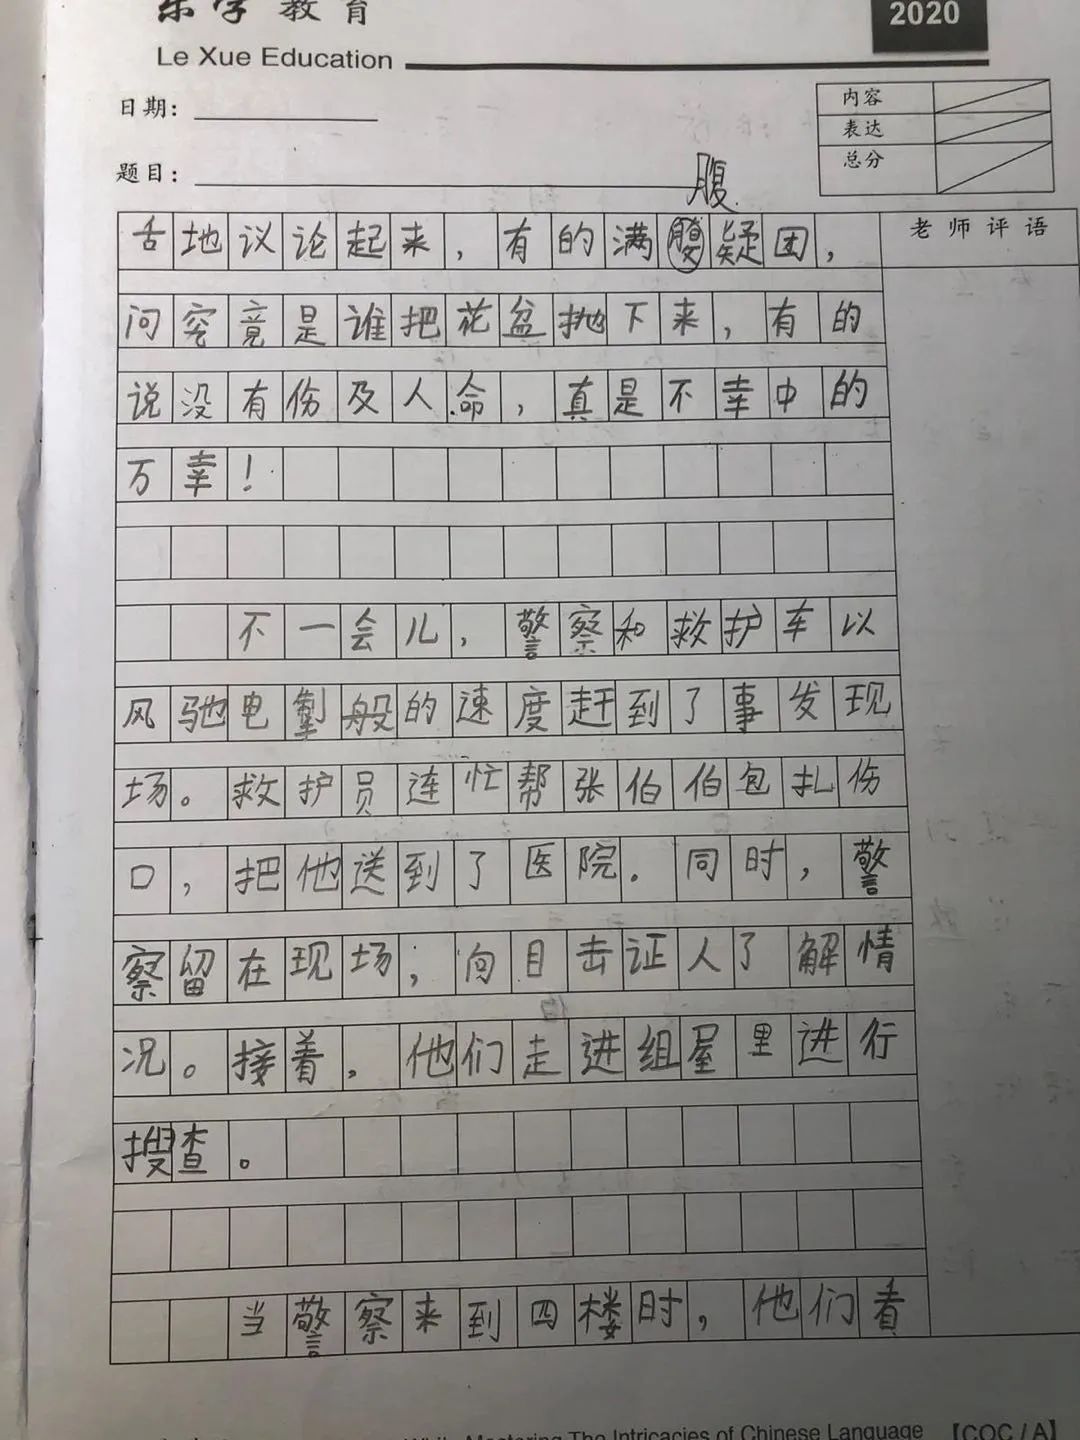 乐学教育
2020
Le Xue Education
日期：
内容
表达
题目：
总分
腹
老师评语
舌地议论起来，有的满腹疑团，
问究竟是谁把花盆抛下来，有的
说没有伤及人命，真是不幸中的
万幸！
不一会儿，警察和救护车以
风驰电掣般的速度赶到了事发现
场。救护员连忙帮张伯伯包扎伤
口，把他送到了医院．同时，警
察留在现场，向目击证人了解情
况。接着，他们走进组屋里进行
搜查。
当警察来到四楼时，他们看
While Mastering The Intricacies of Chinese Language 【COC / A】